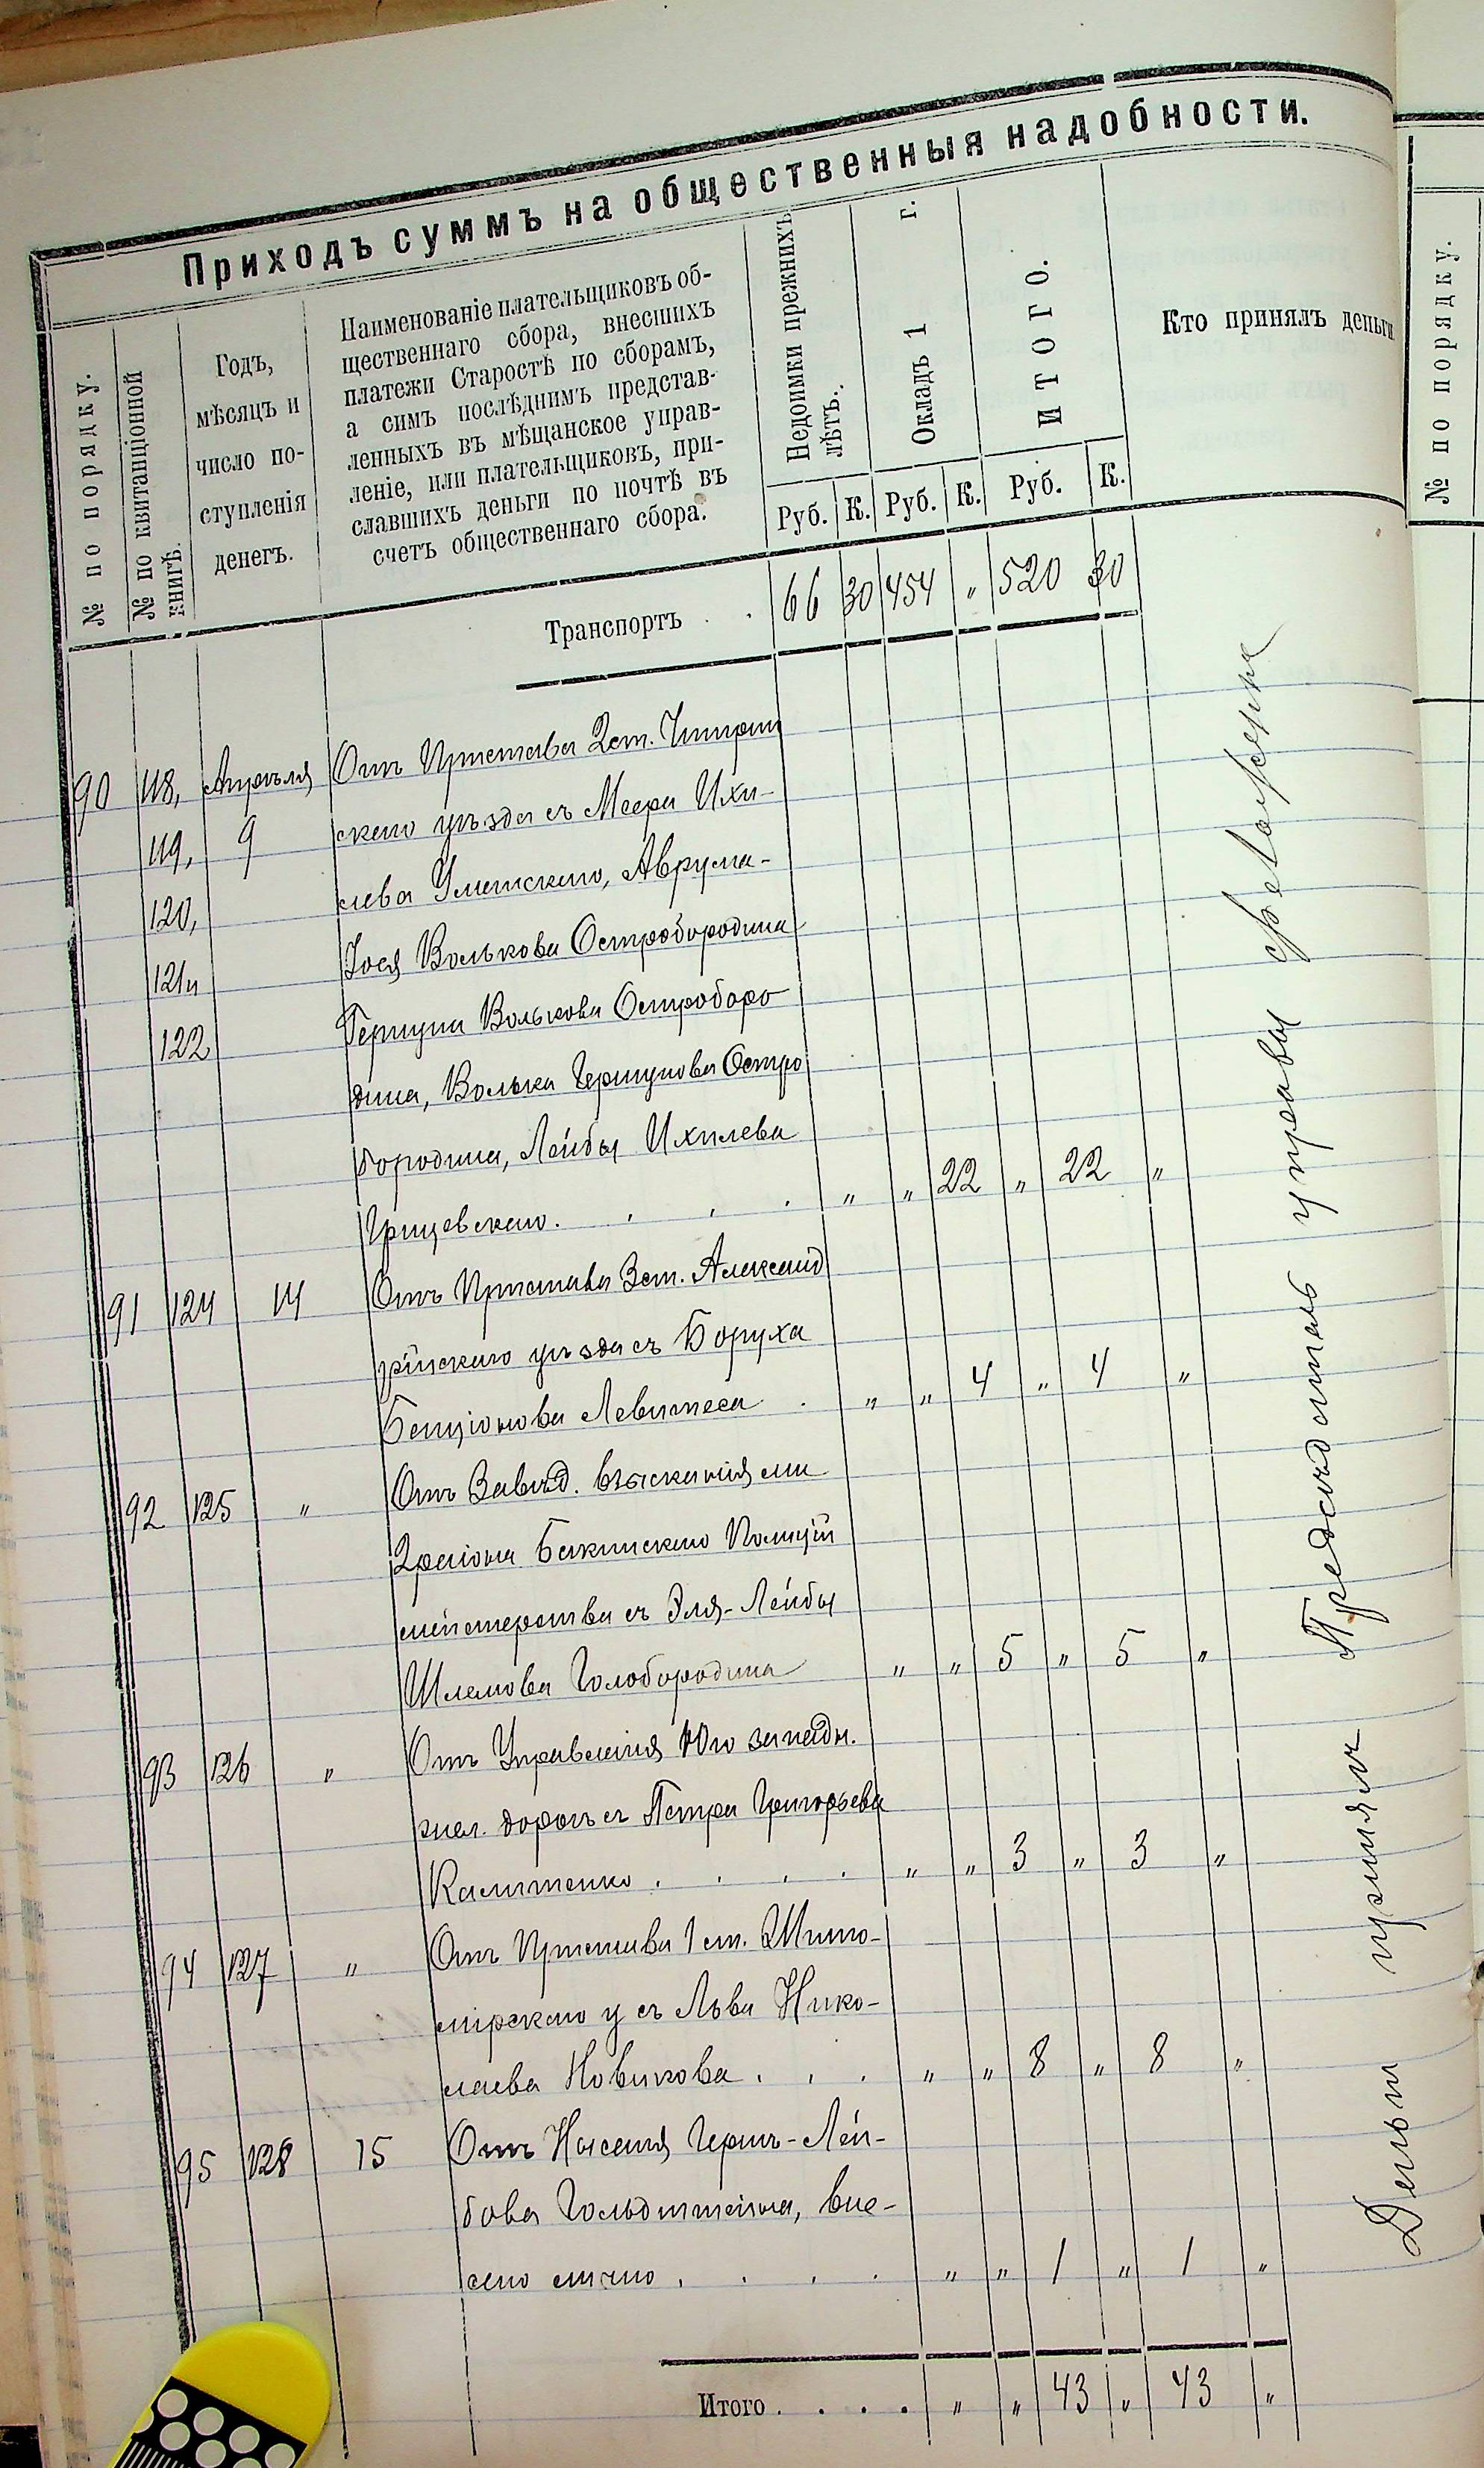 Приходъ суммъ на общественныя надобности.
№ по порядку.
№ по квитанціонной
книгѣ.
Годъ,
мѣсяцъ и
число по-
ступленія
денегъ.
Наименованіе плательщиковъ об-
щественнаго сбора, внесшихъ
платежи Старостѣ по сборамъ,
а симъ послѣднимъ представ-
ленныхъ въ мѣщанское управ-
леніе, или плательщиковъ, при-
славшихъ деньги по почтѣ въ
счетъ общественнаго сбора.
Недоимки прежнихъ
лѣтъ.
Окладъ 1 г.
ИТОГО.
Кто принялъ деньги
Руб. К. Руб. К. Руб. К.
Транспортъ . . 66 30 454 " 520 30
90 118, Апрѣля Отъ Пристава 2 ст. Чигрин
119, 9 скаго уѣзда съ Меера Ихи-
120, лева Уметскаго, Аврума-
121 и Іося Волькова Остробородина
122 Гершуна Волькова Остроборо
дина, Волька Гершунова Остро
бородина, Лейбы Ихилева
Грицевскаго . . . . " " 22 " 22 "
91 124 14 Отъ Пристава 3 ст. Александ
рійскаго уѣзда съ Боруха
Бенціонова Левитеса . " " 4 " 4 "
92 125 " Отъ Завѣд. взысканіями
2 раіона Бакинскаго Полицій
мейстерства съ Эля-Лейбы
Шлемова Голобородина " " 5 " 5 "
93 126 " Отъ Управленія Юго западн.
жел. дорогъ съ Петра Григорьева
Калитенко . . . . " " 3 " 3 "
94 127 " Отъ Пристава 1 ст. Жито-
мірскаго у съ Льва Нико-
лаева Новикова . . . " " 8 " 8 "
95 128 15 Отъ Нысеня Гершъ-Лей-
бова Гольдштейна, вне-
сено лично . . . . " " 1 " 1 "
Итого . . . . " " 43 " 43 "
Деньги принялъ
Предсѣдатель управы
№ по порядку.